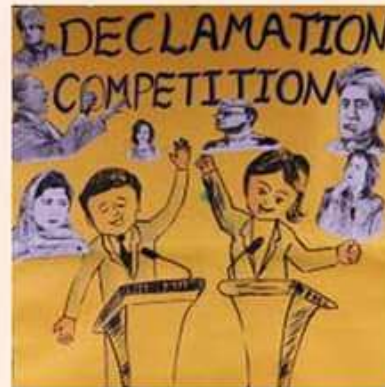 DECLAMATION
COMPETITION